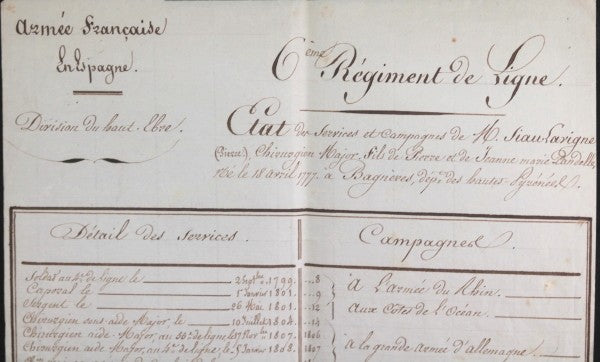 Armée Française
En Espagne.
Division du haut-Ebre.
6ème Régiment de Ligne.
Etat des Services et Campagnes de M. Siau-Lavigne
(Pierre), Chirurgien Major, fils de Pierre et de Jeanne marie
Né le 18 avril 1777. à Bagnères, dépt. des hautes-Pyrénées.
Détail des Services.
Soldat au 4e. de ligne le 2 Sept.bre 1799.
Caporal le 1801.
Sergent le 26 Mai 1801.
Chirurgien sous aide Major, le 10 Juillet 1804.
Chirurgien aide Major au 55e. de ligne le 17 Nov.bre 1807.
Chirurgien aide Major, au 4e. de ligne, le 5 Janvier 1808.
Campagnes
8
9
12
14
1806
1807
à L'armée du Rhin.
aux Côtes de L'Océan.
à la grande armée d'allemagne.